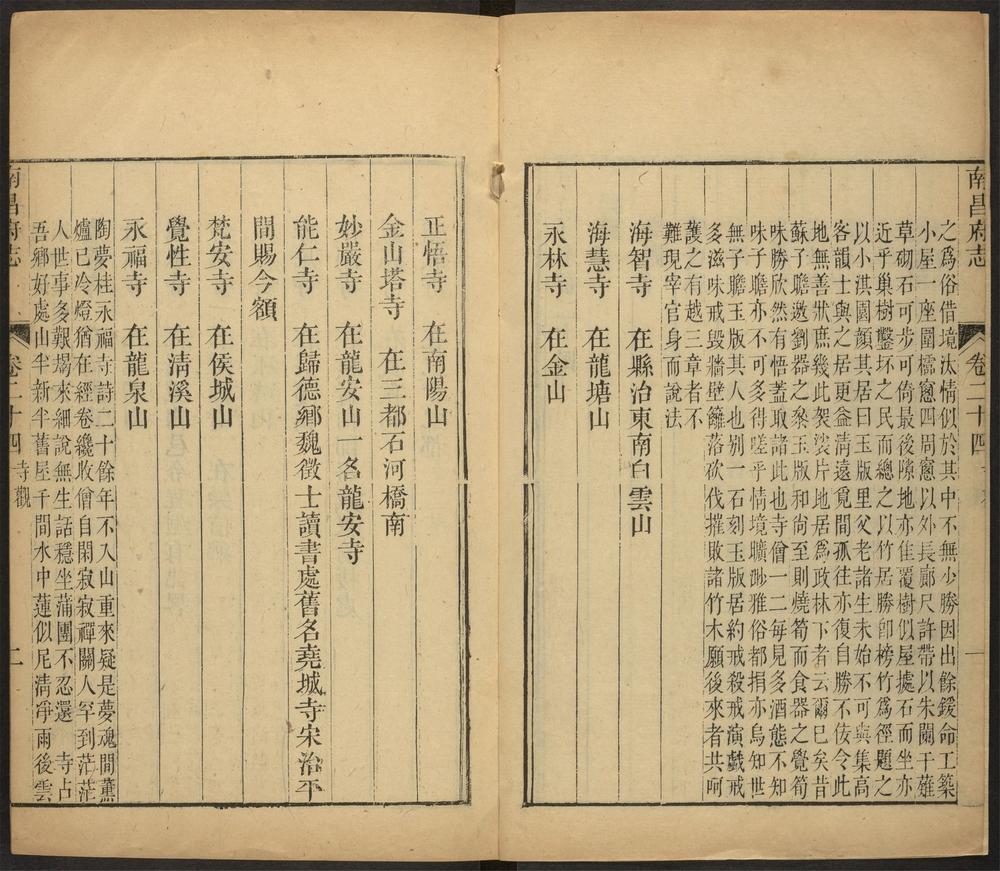 南昌府志
卷二十四
一
之爲俗借境汰情似於其中不無少勝因出餘鍰命工築
小屋一座圍櫺窻四周窻以外長廊尺許帶以朱闌干薙
草砌石可步可倚最後隙地亦佳覆樹似屋據石而坐亦
近乎巢樹鑿坏之民而總之以竹居勝卽榜竹爲徑題之
以小淇園顔其居曰玉版里父老諸生未始不可與集高
客韻士與之居更益淸遠覓間孤往亦復自勝不佞令此
地無善狀庶幾此袈裟片地居爲政林下者云爾巳矣昔
蘇子瞻邀劉器之叅玉版和尙至則燒筍而食器之覺筍
味勝欣然有悟蓋取諸此也寺僧一二每見多酒態不知
味子瞻亦不可多得嗟乎情境曠渺雅俗都捐亦烏知世
無子瞻玉版其人也别一石刻玉版居約戒殺戒演戲戒
多滋味戒毁牆壁籬落砍伐摧敗諸竹木願後來者共呵
護之有越三章者不
難現宰官身而說法
海智寺 在縣治東南白雲山
海慧寺 在龍塘山
永林寺 在金山
正悟寺 在南陽山
金山塔寺 在三都石河橋南
妙嚴寺 在龍安山一名龍安寺
能仁寺 在歸德鄉魏徵士讀書處舊名堯城寺宋治平
間賜今額
梵安寺 在侯城山
覺性寺 在淸溪山
永福寺 在龍泉山
陶夢桂永福寺詩二十餘年不入山重來疑是夢魂間薰
爐已冷燈猶在經卷纔敗僧自閑寂寂禪關人罕到茫茫
人世事多艱朅來細說無生話穩坐蒲團不忍還 寺占
吾鄉好處山半新半舊屋千間水中蓮似尼淸凈雨後雲
南昌府志
卷二十四 寺觀
二